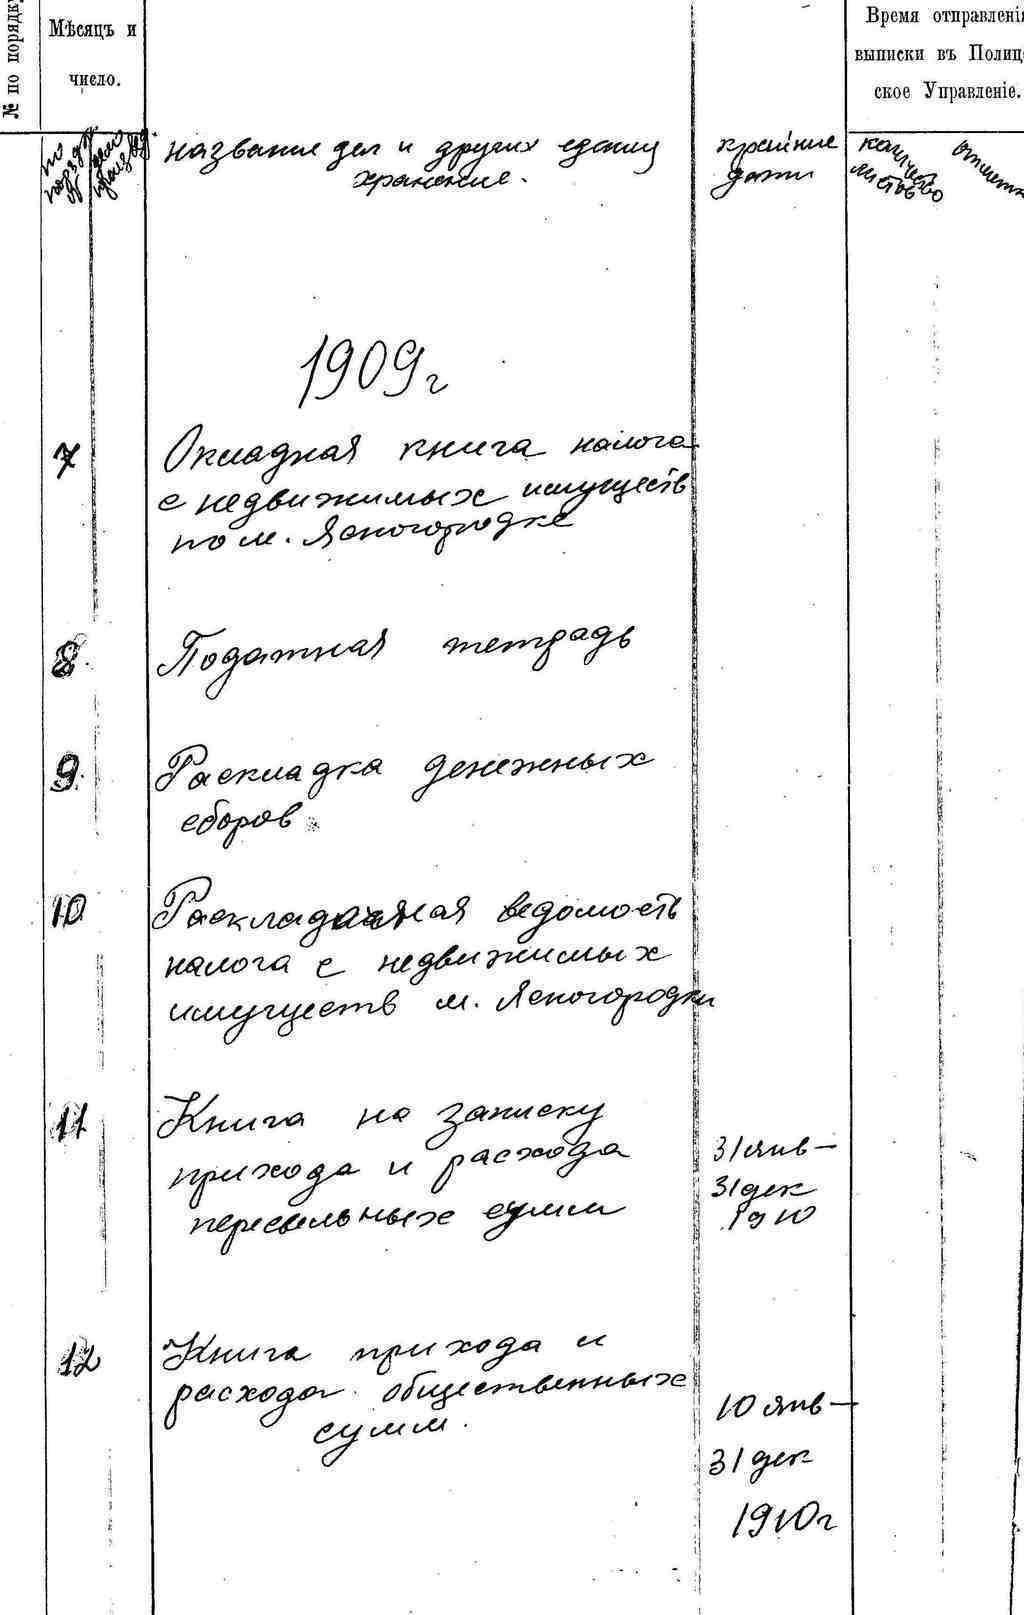 № по порядку
Мѣсяцъ и
число.
Время отправленія
выписки въ Полицей
ское Управленіе.
№ по порядк
дело произвед.
название дел и других единиц
хранение.
крайние
даты
количество
листов
отметк
1909 г
7 Окладная книга налога
с недвижимых имуществ
по м. Ясногородке
8. Податная тетрадь
9. Раскладка денежных
сборов
10 Раскладочная ведомость
налога с недвижимых
имуществ м. Ясногородки
11 Книга на записку
прихода и расхода
пересыльных сумм
31 янв —
31 дек
1910
12 Книга прихода и
расхода общественных
сумм.
10 янв —
31 дек
1910 г